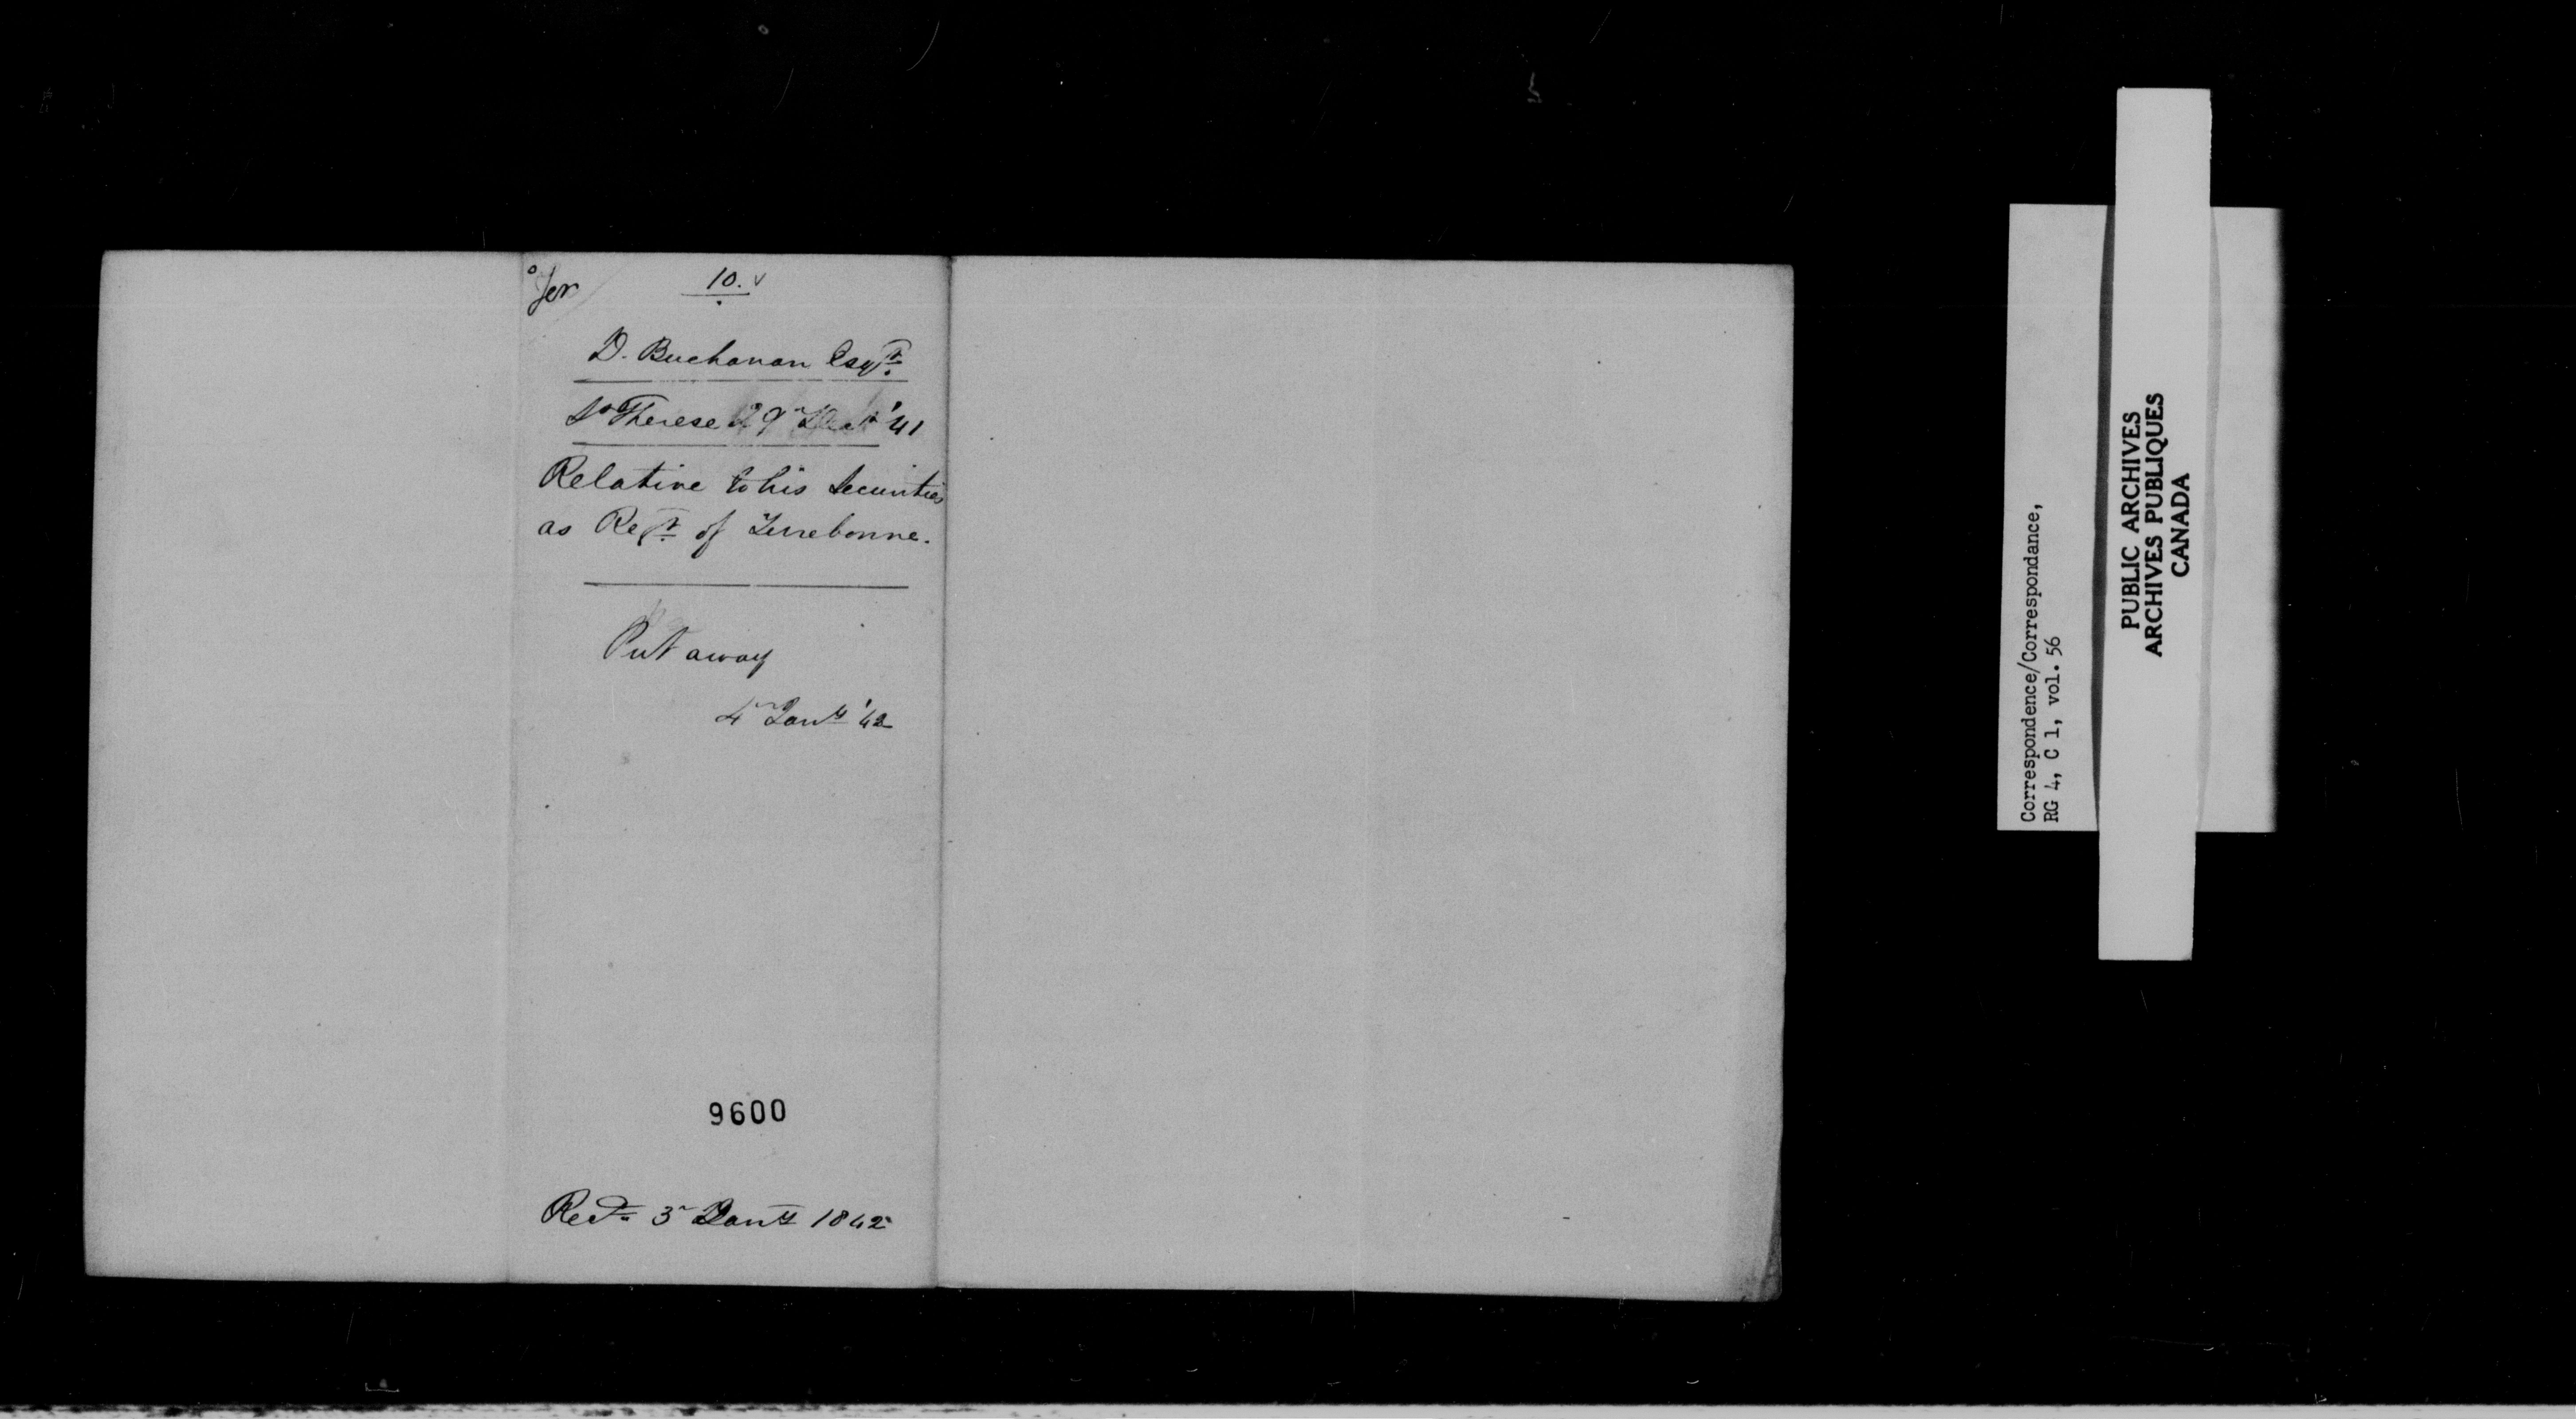 Jer
10.
D. Buchanan Esqr.
St Therese 29 Decr '41
Relative to his Securities
as Regr. of Terrebonne.
Put away
4 Jany '42
9600
Recd. 3 Jany 1842
Correspondence/Correspondance,
RG 4, C 1, vol. 56
PUBLIC ARCHIVES
ARCHIVES PUBLIQUES
CANADA